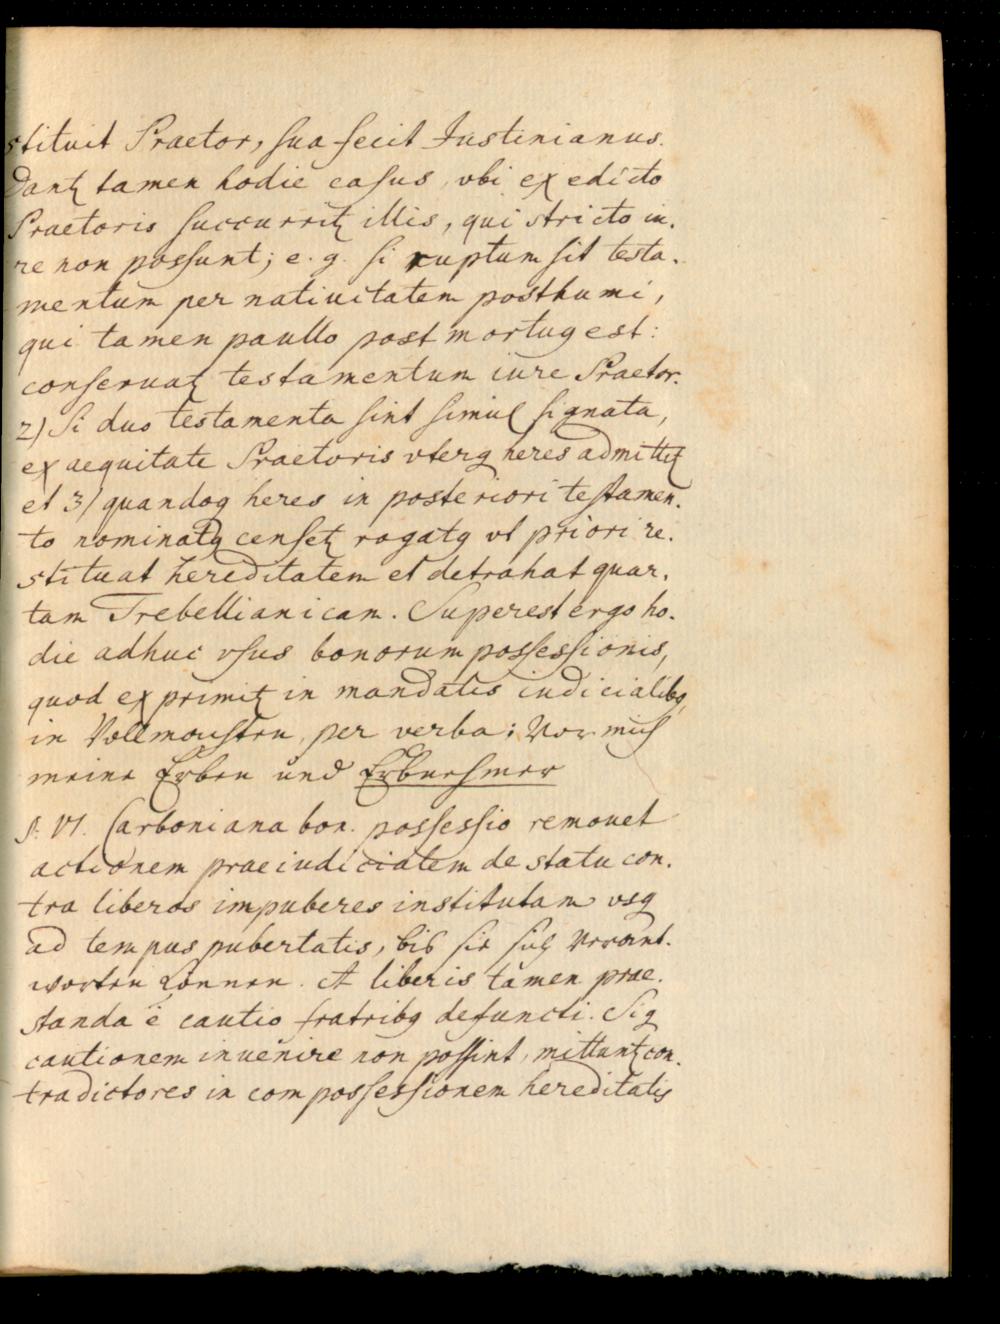 stituit Praetor, sua fecit Iustinianus.
Dantꝫ tamen hodie casus, vbi ex edicto
Praetoris succurritꝫ illis, qui stricto iu-
re non possunt; e. g. si ruptum sit testa-
mentum per natiuitatem posthumi,
qui tamen paullo post mortuꝗ est:
conseruatꝫ testamentum iure Praetor.
2) Si duo testamenta sint simul signata,
ex aequitate Praetoris vterꝗ heres admittitꝫ
et 3) quandoꝗ heres in posteriori testamen-
to nominatꝗ censetꝫ rogatꝗ vt priori re-
stituat hereditatem et detrahat quar-
tam Trebellianicam. Superest ergo ho-
die adhuc vsus bonorum possessionis,
quod exprimitꝫ in mandatis iudicialibꝗ,
in Vollmachten, per verba: Vor mich
meine Erben und Erbnehmer
§. VI. Carboniana bon. possessio remouet
actionem praeiudicialem de statu con-
tra liberos impuberes institutam vsꝗ
ad tempus pubertatis, biß sie sich verant-
worten können. A liberis tamen prae-
standa ē cautio fratribꝗ defuncti. Siꝗ
cautionem inuenire non possint, mittuntꝫ con-
tradictores in compossessionem hereditatis